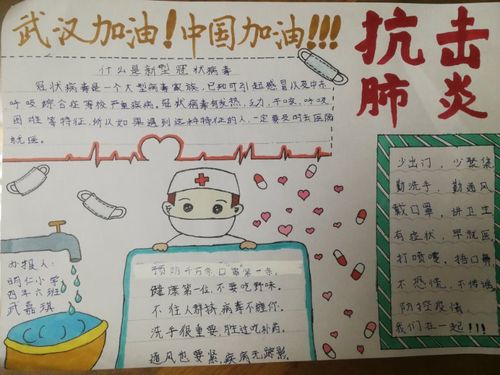 武汉加油!中国加油!!!
抗击
肺炎
什么是新型冠状病毒
冠状病毒是一个大型病毒家族,已知可引起感冒以及中东
呼吸综合征等较严重疾病。冠状病毒有发热,乏力,干咳,呼吸
困难等特征,所以如果遇到这种特征的人,一定要及时去医院
就医。
少出门,少聚集
勤洗手,勤通风
戴口罩,讲卫生
有症状,早就医
打喷嚏,捂口鼻
不恐慌,不传谣
防控疫情
我们在一起!!!
办报人:
明仁小学
四年六班
武嘉琪
预防千万条口罩第一条。
健康第一位,不要吃野味。
不往人群挤,病毒不缠你。
洗手很重要,胜过吃补药。
通风也要紧,疾病无踪影。